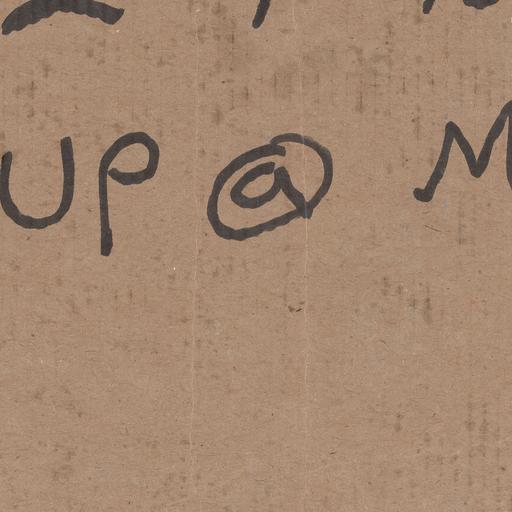 UP @ M